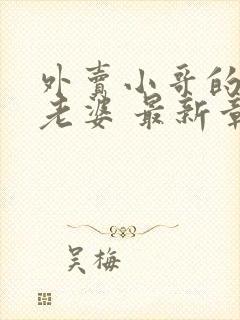 外賣小哥的
老婆 最新章
吴梅